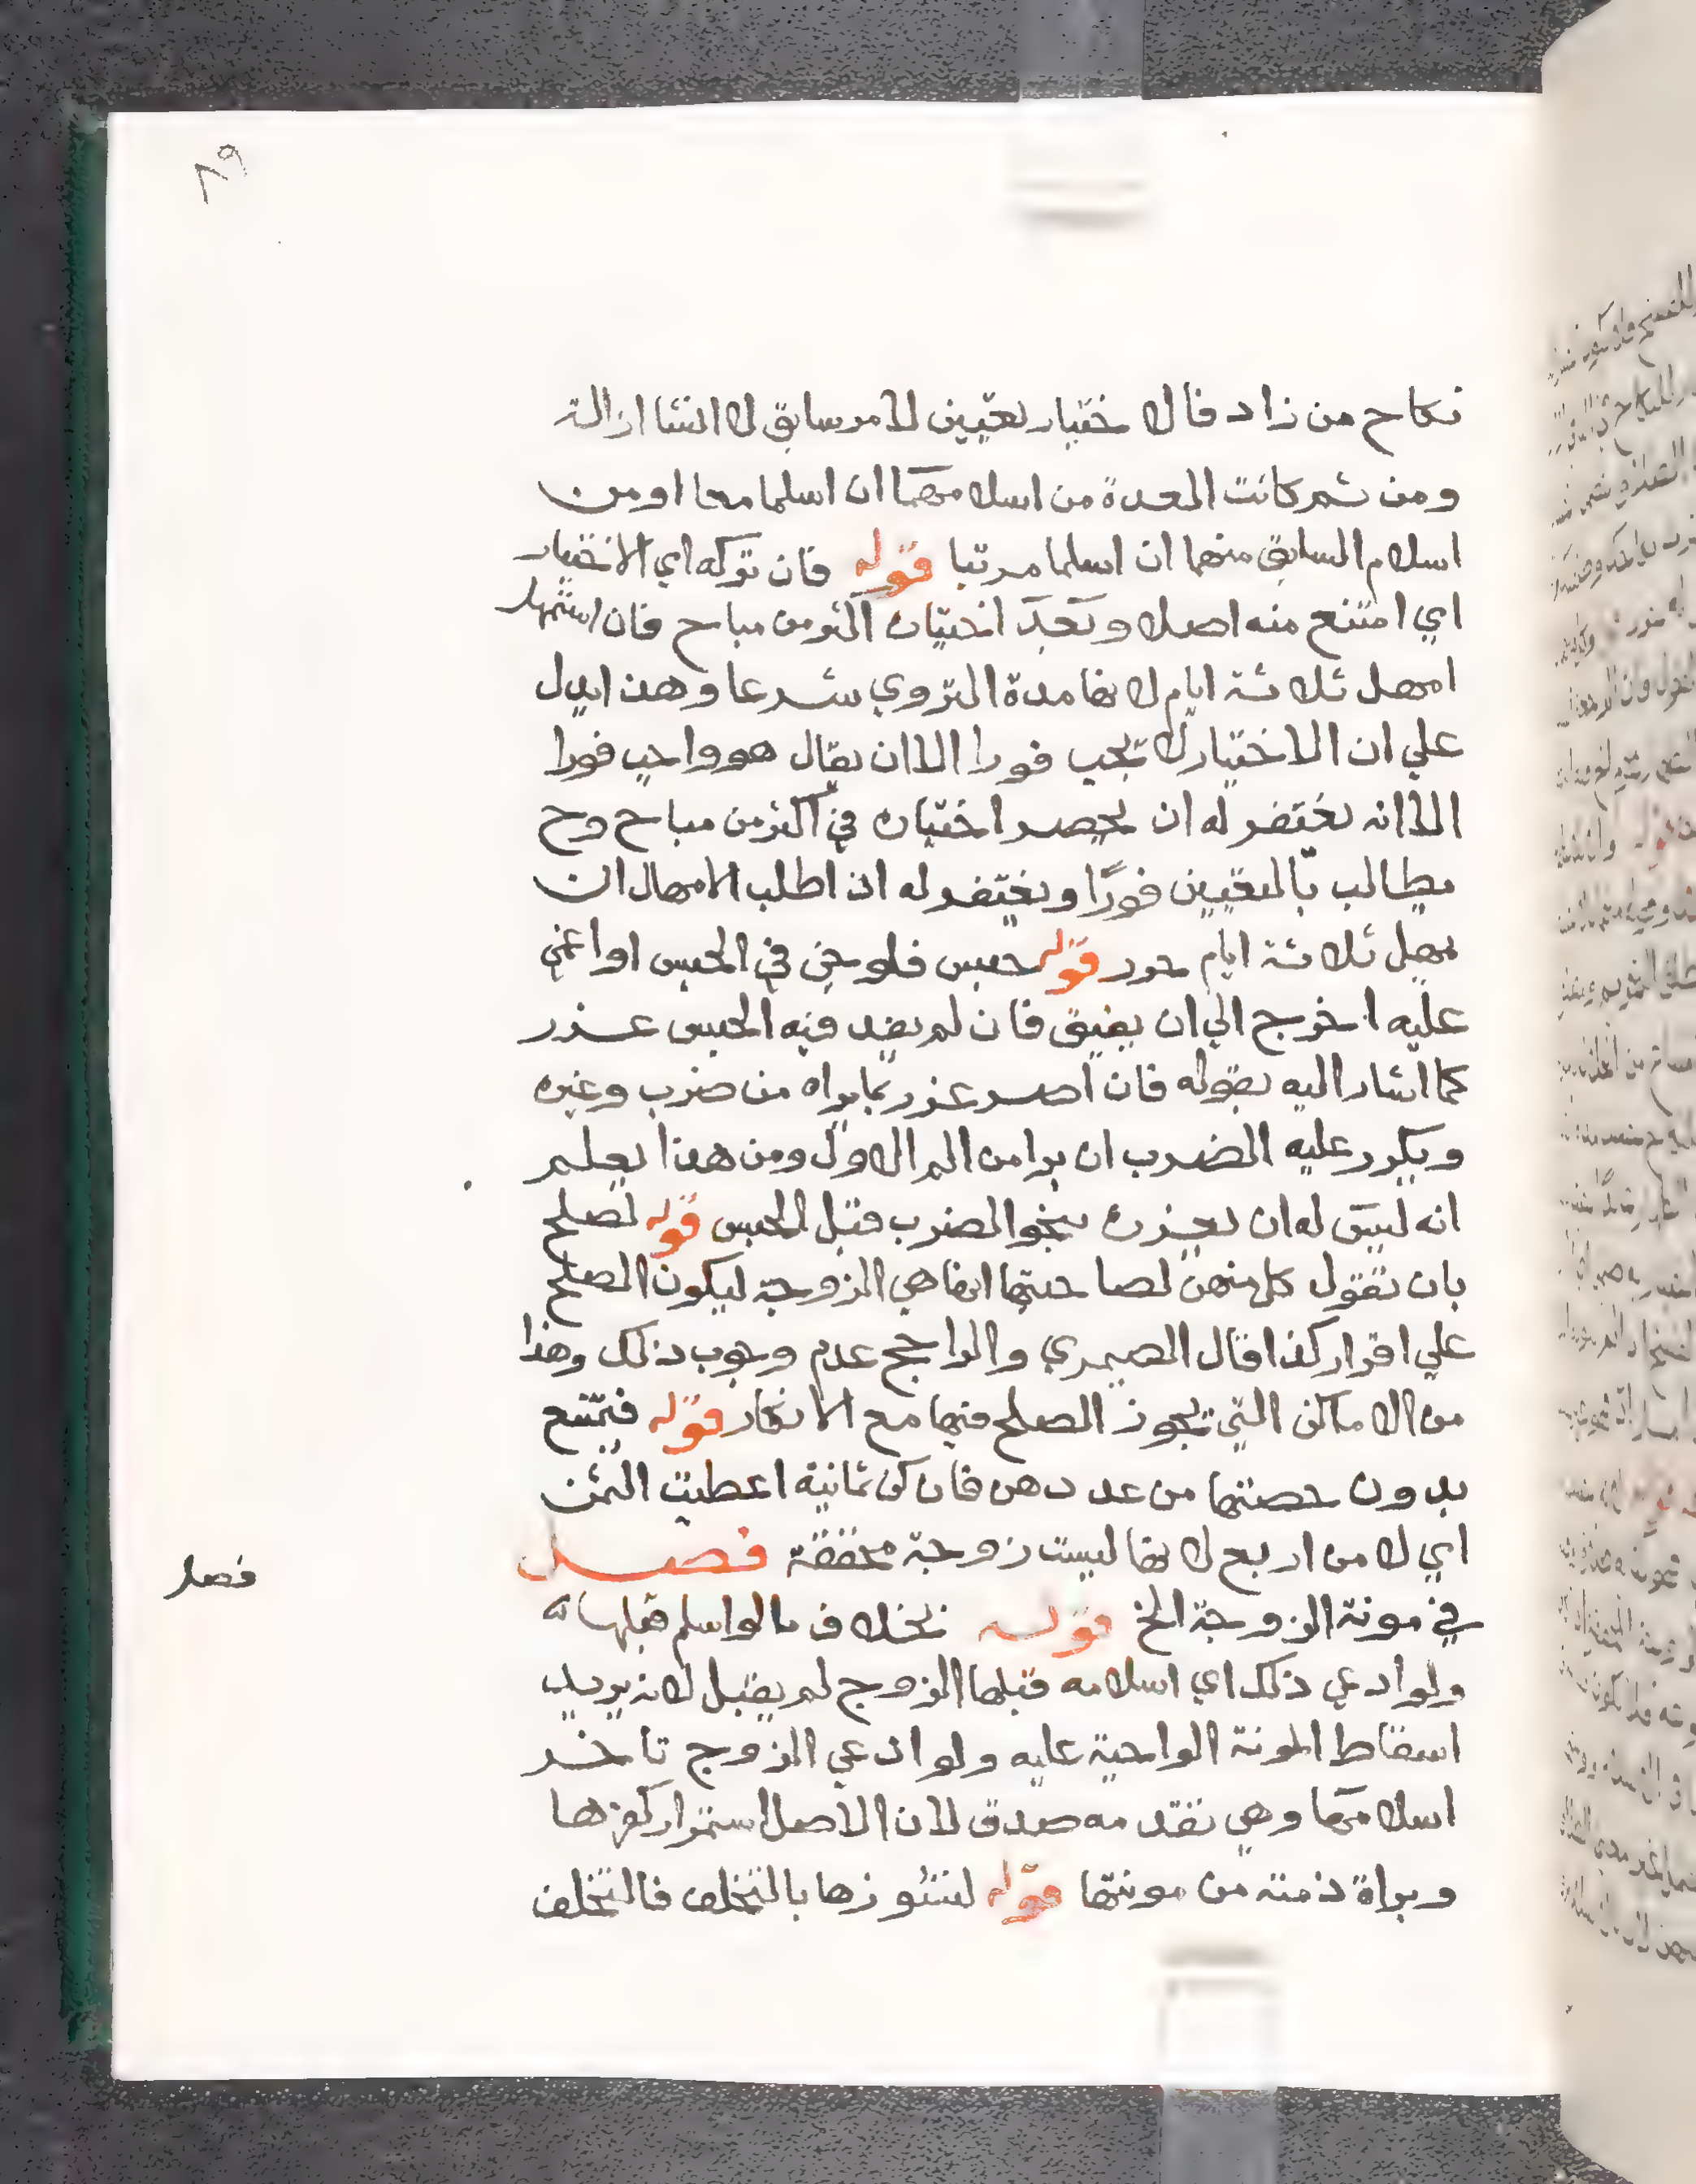 ٨٩
نكاح من زاد فالاختيار تعيين لامر سابق لا انشا ازالة
ومن ثم كانت العدة من اسلامهما ان اسلما معا او من
اسلام السابق منهما ان اسلما مرتبا قوله فان تركه اي الاختيار
اي امتنع منه اصلا وبعد اختيار اكثر من مباح فان استمهل
امهل ثلاثة ايام لانها مدة التروي شرعا وهذا يدل
علي ان الاختيار لا يجب فورا الا ان يقال هو واجب فورا
الا انه يغتفر له ان يحصر اختياره في اكثر من مباح وح
يطالب بالتعيين فورًا ويغتفر له اذا طلب الامهال ان
يمهل ثلاثة ايام حرر قوله حبس فلو جن في الحبس او اغمي
عليه اخرج الي ان يفيق فان لم يفد فيه الحبس عزر
كما اشار اليه بقوله فان اصر عزر بما يراه من ضرب وغيره
ويكرر عليه الضرب ان برا من الم الاول ومن هذا يعلم
انه ليس له ان يعزره بنحو الضرب قبل الحبس قوله لصلح
بان تقول كل منهن لصاحبتها انها هي الزوجة ليكون الصلح
علي اقرار كذا قال الصيمري والراجح عدم وجوب ذلك وهذا
من الاماكن التي يجوز الصلح فيها مع الانكار قوله فيمتنع
بدون حصتها من عددهن فان كن ثمانية اعطيت الثمن
اي لا من اربع لانها ليست زوجة محققة فصل
في مونة الزوجة الخ قوله بخلاف ما لو اسلم قبلها
ولو ادعي ذلك اي اسلامه قبلها الزوج لم يقبل لانه يريد
اسقاط المونة الواجبة عليه ولو ادعي الزوج تاخر
اسلامها وهي تقدمه صدق لان الاصل استمرار كفرها
وبراة ذمته من مونتها قوله لنشوزها بالتخلف فالتخلف
فصل